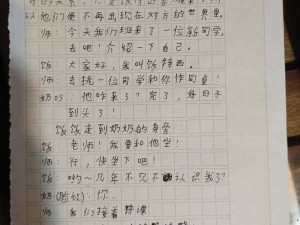 以他们便不再出现在对方的世界里。
师：今天我们班来了一位新同学，
去吧！介绍一下自己。
饭：大家好，我叫饭
师：去挑一位同学和你作同桌！
奶OS：他咋来了？完了，好日子
到头了！
饭饭走到奶奶的身旁
饭：老师！我要和他坐！
师：行，快坐下吧！
饭：哟～几年不见不认识我了？
奶(脸红)：你…
师：我们接着讲课